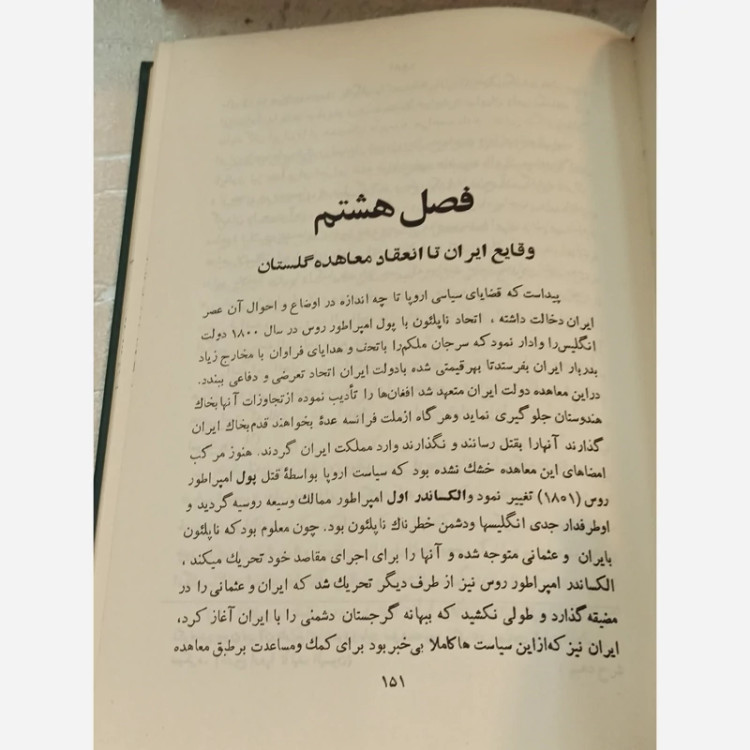 فصل هشتم
وقایع ایران تا انعقاد معاهده گلستان
پیداست که قضایای سیاسی اروپا تا چه اندازه در اوضاع و احوال آن عصر
ایران دخالت داشته ، اتحاد ناپلئون با پول امپراطور روس در سال ۱۸۰۰ دولت
انگلیس را وادار نمود که سرجان ملکم را باتحف و هدایای فراوان با مخارج زیاد
بدربار ایران بفرستد تا بهر قیمتی شده بادولت ایران اتحاد تعرضی و دفاعی ببندد.
دراین معاهده دولت ایران متعهد شد افغان‌ها را تأدیب نموده ازتجاوزات آنها بخاك
هندوستان جلوگیری نماید وهرگاه ازملت فرانسه عدهٔ بخواهند قدم بخاك ایران
گذارند آنها را بقتل رسانند و نگذارند وارد مملکت ایران گردند. هنوز مرکب
امضاهای این معاهده خشك نشده بود که سیاست اروپا بواسطهٔ قتل پول امپراطور
روس (۱۸۰۱) تغییر نمود والکساندر اول امپراطور ممالك وسیعه روسیه گردید و
اوطرفدار جدی انگلیسها ودشمن خطرناك ناپلئون بود. چون معلوم بود که ناپلئون
بایران و عثمانی متوجه شده و آنها را برای اجرای مقاصد خود تحریك میکند ،
الکساندر امپراطور روس نیز از طرف دیگر تحریك شد که ایران و عثمانی را در
مضیقه گذارد و طولی نکشید که ببهانه گرجستان دشمنی را با ایران آغاز کرد،
ایران نیز که ازاین سیاست ها کاملا بی‌خبر بود برای کمك ومساعدت برطبق معاهده
۱۵۱